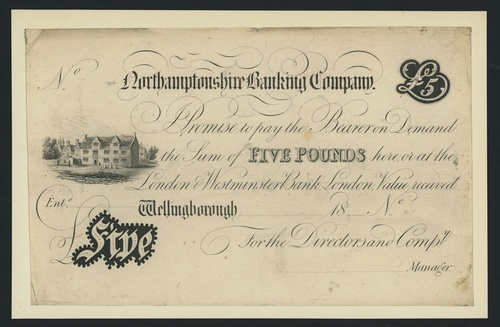 No
Northamptonshire Banking Company.
£5
I Promise to pay the Bearer on Demand
the Sum of FIVE POUNDS here or at the
London & Westminster Bank, London, Value received
Entd
Wellingborough 18 No
£Five
For the Directors and Compy
Manager.